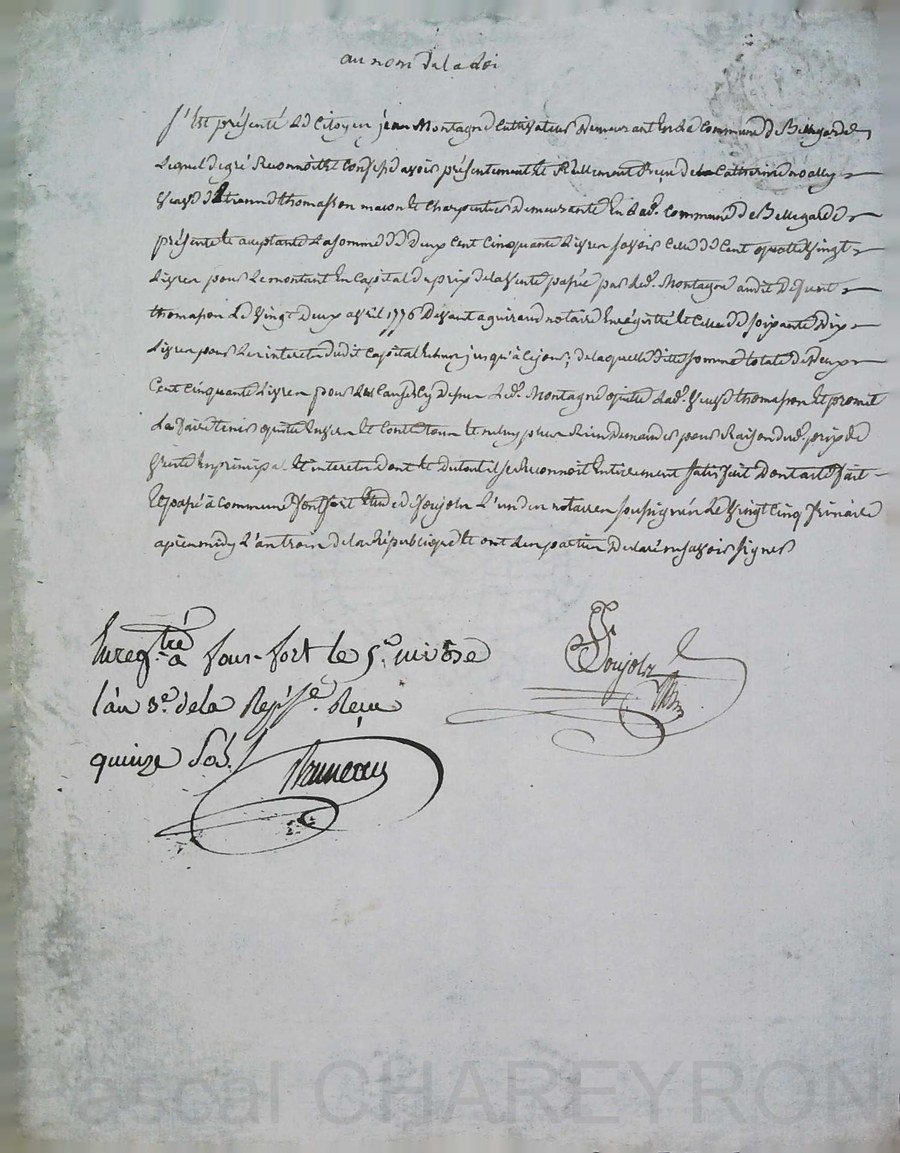 au nom de la loi
S'est présenté le Citoyen jean Montagne Cultivateur Demeurant en la Commune de Bellegarde
Lequel de gré Reconnoit et Confesse avoir présentement et Réellement Reçu de la Catherine
Veuve thomasson macon et Charpentier Demeurante En lad. Commune de Bellegarde
présente et acceptante La somme de deux Cent Cinquante Livres savoir Celle de Cent quattre Vingt
Livres pour Le montant En Capital du prix de la Vente passée par led. Montagne audit Défunt
thomasson Le Vingt Deux avril 1776 Devant aguiraud notaire Enrégistré et Celle de soixante Dix
Livres pour Les interets dudit Capital Echus jusqu'à Ce jour; de laquelle ditte somme totale de Deux
Cent Cinquante Livres pour Les Causes Cy Dessus Led. Montagne quitte lad. Veuve thomasson Et promet
La faire tenir quitte Envers Et Contre tous Et ne luy plus Rien Demander pour Raison dud. prix de
Vente En principal Et interets dont Et du tout il se Reconnoit Entierement satisfait Dont acte fait
Et passé à Commune Etude de Soujols L'un des notaires soussignés Le Vingt Cinq frimaire
apres midy L'an trois de la République Et ont Les parties Declaré ne savoir signer
Soujols
Enregtré a four-fort le 5e. nivôse
l'an 3e. de la Repse. Reçu
quinze Sols
Pascal CHAREYRON